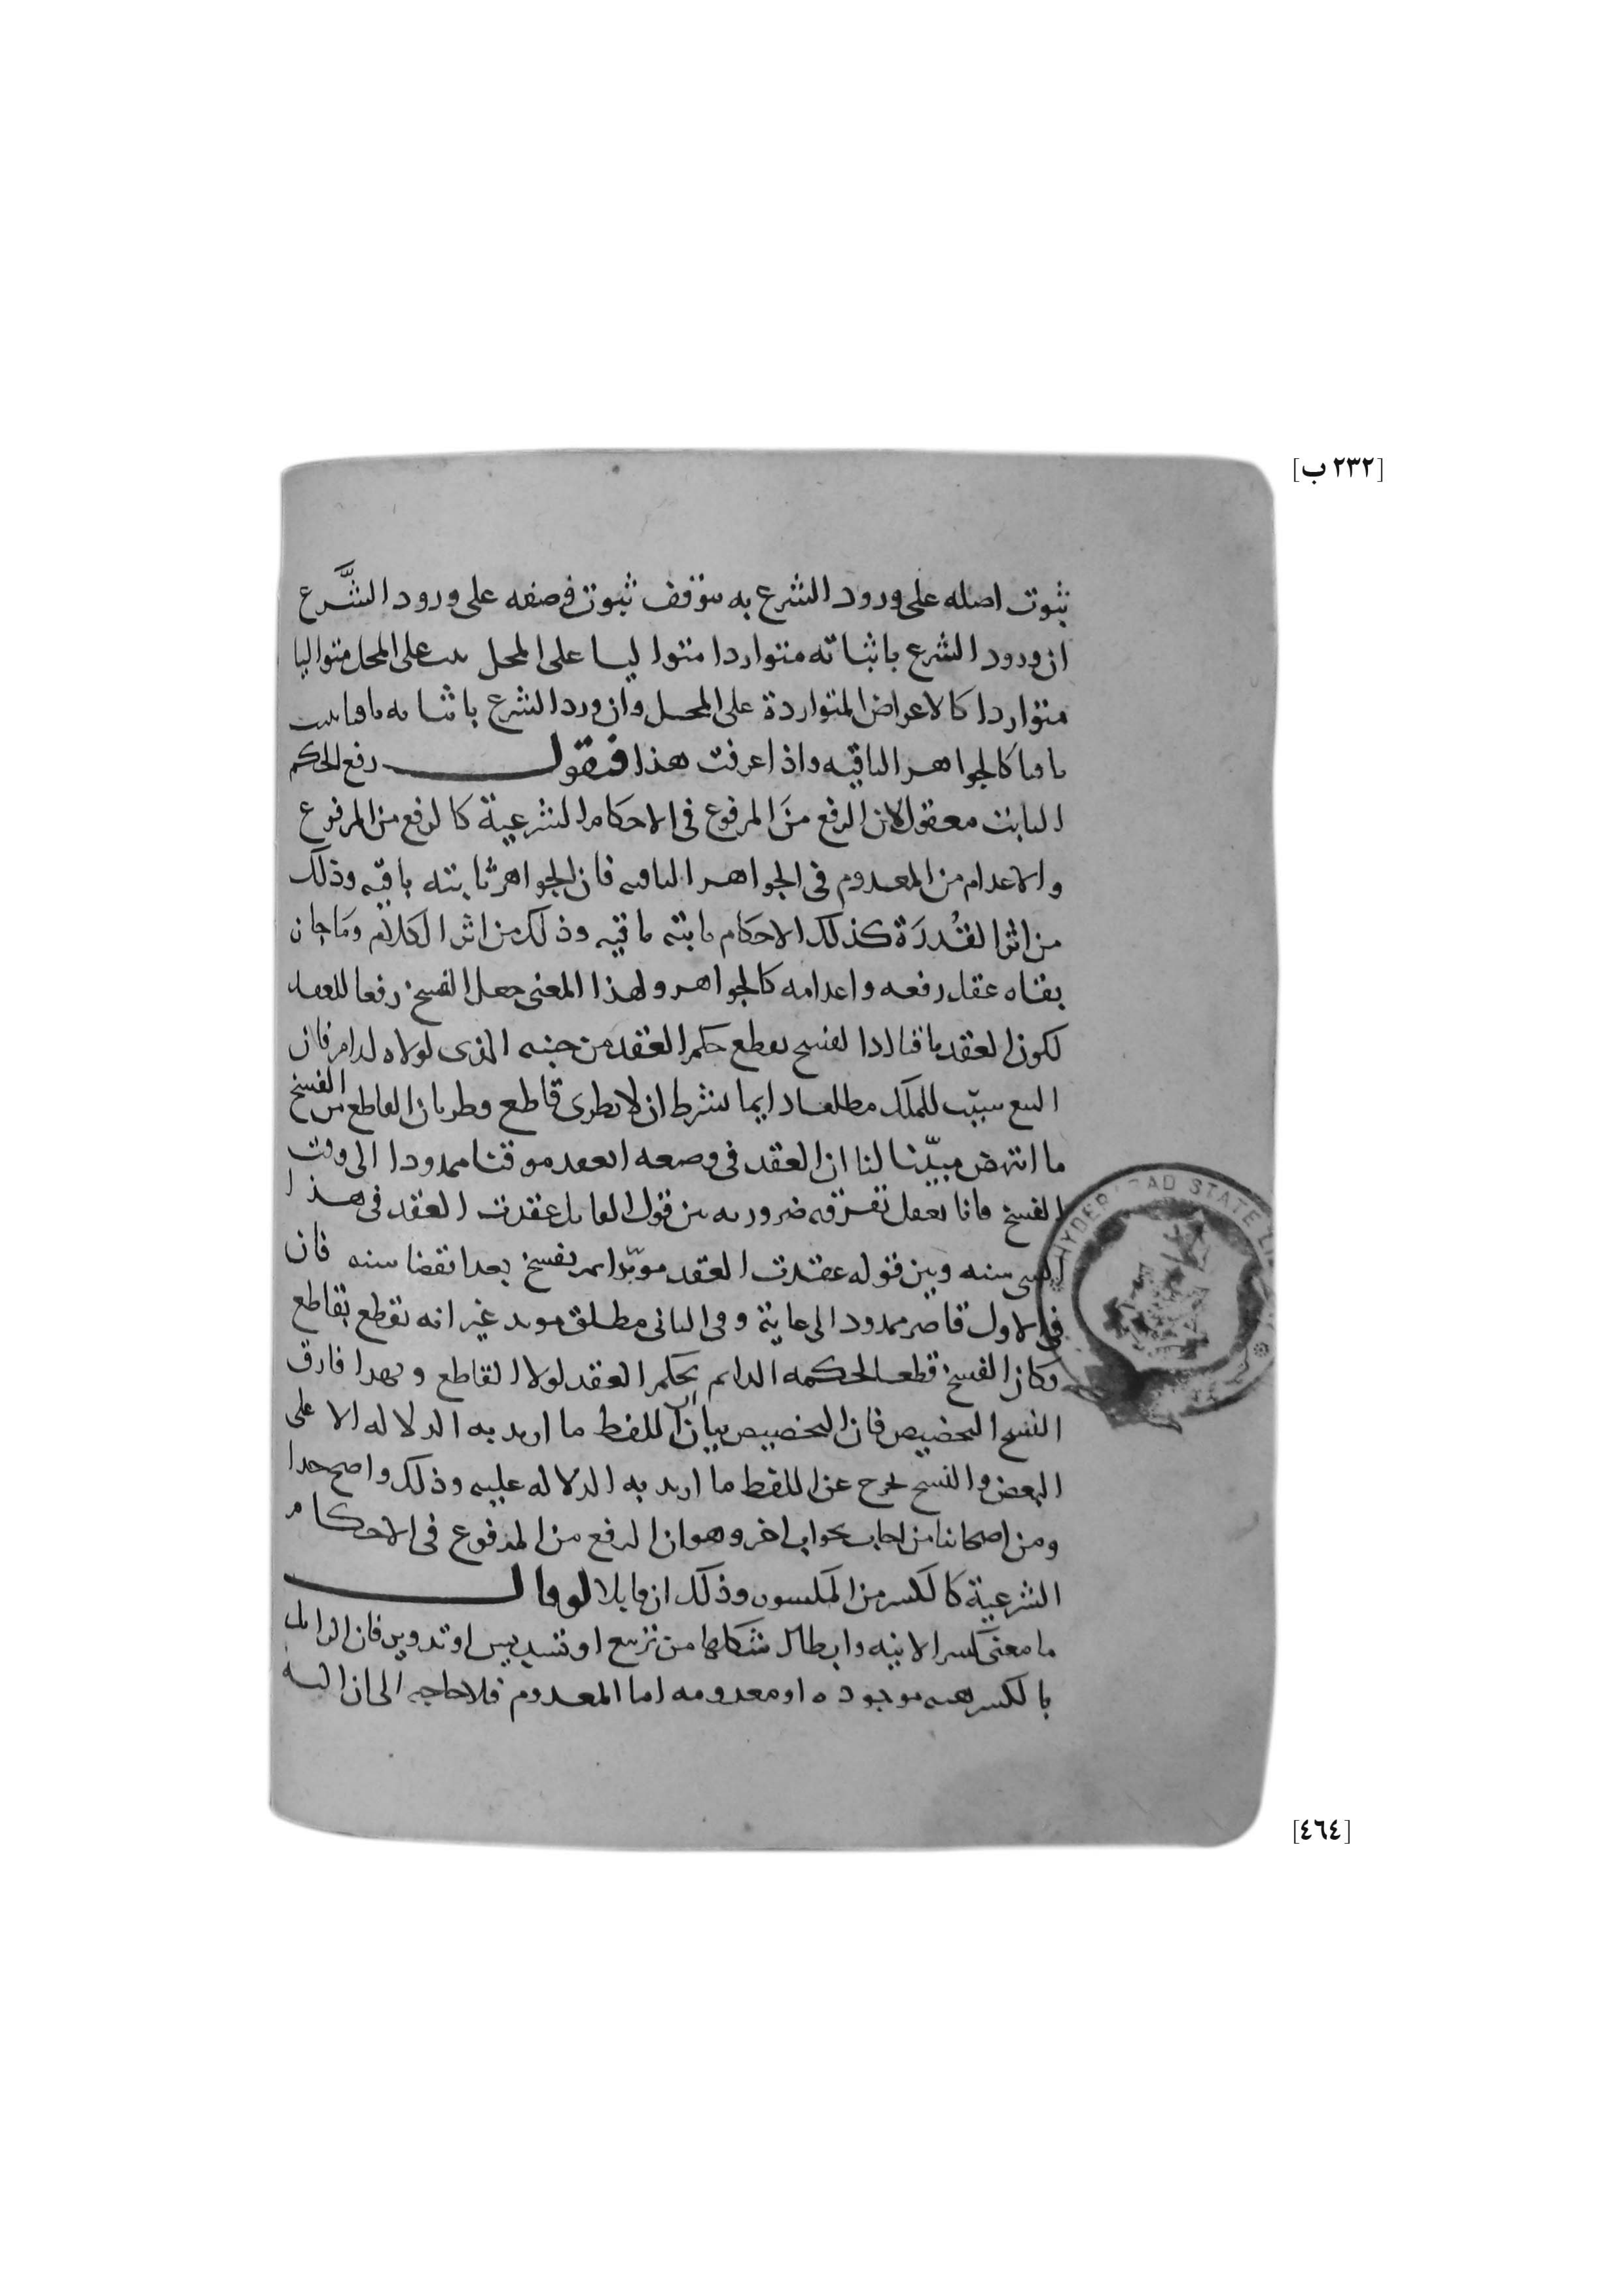 [٢٣٢ ب]
ثبوت اصله على ورود الشرع به يتوقف ثبوت وصفه على ورود الشرع
ان ورود الشرع باثباته متواردا متواليا على المحل يثبت على المحل متواليا
متواردا كالاعراض المتواردة على المحل وان ورد الشرع باثباته باقيا يثبت
باقيا كالجواهر الباقيه واذا عرفت هذا فنقول رفع الحكم
الثابت معقول لان الرفع من المرفوع في الاحكام الشرعية كالرفع من المرفوع
والاعدام من المعدوم في الجواهر الباقيه فان الجواهر ثابته باقيه وذلك
من اثر القدرة كذلك الاحكام ثابته باقيه وذلك من اثر الكلام وما جاز
بقاه عقل رفعه واعدامه كالجواهر ولهذا المعنى جعل الفسخ رفعا للعقد
لكون العقد باقيا اذا الفسخ يقطع حكم العقد من حيث الذى لولاه لدام فان
البيع سبب للملك مطلقا دايما بشرط ان لا يطرى قاطع وطريان القاطع من الفسخ
ما انتهض مبينا لنا ان العقد في وضعه انعقد موقتا ممدودا الى وقت
الفسخ فانا نعقل تفرقه ضروريه بين قول القايل عقدت العقد في هذا
الشي سنه وبين قوله عقدت العقد موبدا ثم يفسخ بعد انقضا سنه فان
في الاول قاصر ممدود الى غاية وفي الثاني مطلق موبد غير انه يقطع بقاطع
وكان الفسخ قطعا لحكمه الدايم بحكم العقد لولا القاطع وبهذا فارق
النسخ التخصيص فان التخصيص بيان ان اللفظ ما اريد به الدلاله الا على
البعض والنسخ يخرج عن اللفظ ما اريد به الدلاله عليه وذلك واضح جدا
ومن اصحابنا من اجاب بجواب اخر وهو ان الرفع من المرفوع في الاحكام
الشرعية كالكسر من المكسور وذلك ان قايلا لو قال
ما معنى كسر الانيه وابطال شكلها من تربيع او تسديس او تدوير فان الزايل
بالكسر موجوده او معدومه اما المعدوم فلا حاجه الى ازالته
[٤٦٤]
HYDERABAD STATE LI